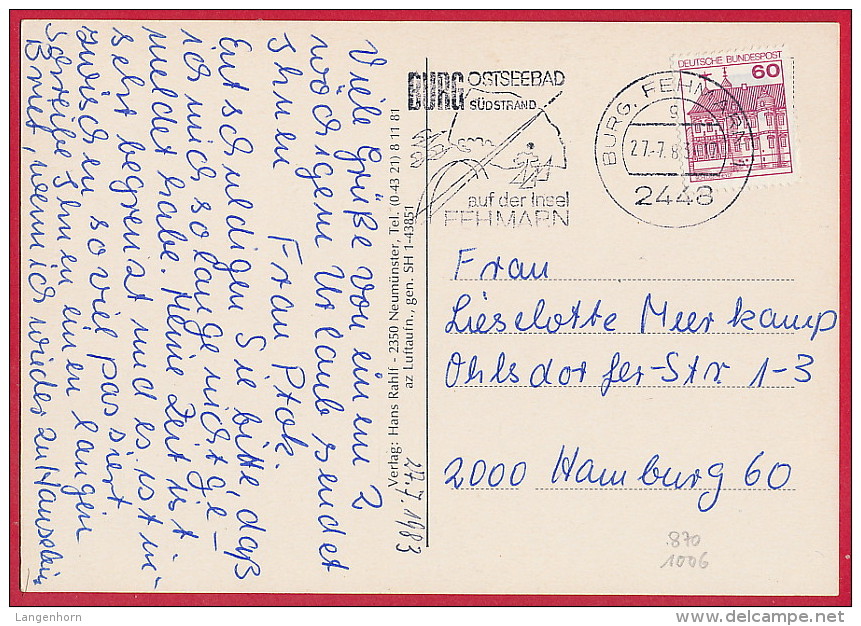 Viele Grüße von einem 2
wöchigem Urlaub sendet
Ihnen Frau Ptok.
Entschuldigen Sie bitte, daß
ich mich solange nicht ge-
meldet habe. Meine Zeit ist
sehr begrenzt und es ist in-
zwischen so viel passiert
schreibe Ihnen einen langen
Brief, wenn ich wieder zu Hause bin
Verlag: Hans Rahlf - 2350 Neumünster, Tel. (0 43 21) 8 11 81
az Luftaufn., gen. SH 1-43851
27.7.1983
BURG OSTSEEBAD
SÜDSTRAND
auf der Insel
FEHMARN
BURG, FEHMARN 1
g
27.-7.8
2448
DEUTSCHE BUNDESPOST
60
Frau
Lieselotte Meerkamp
Ohlsdorfer-Str. 1-3
2000 Hamburg 60
870
1006
Langenhorn
www.delcampe.net